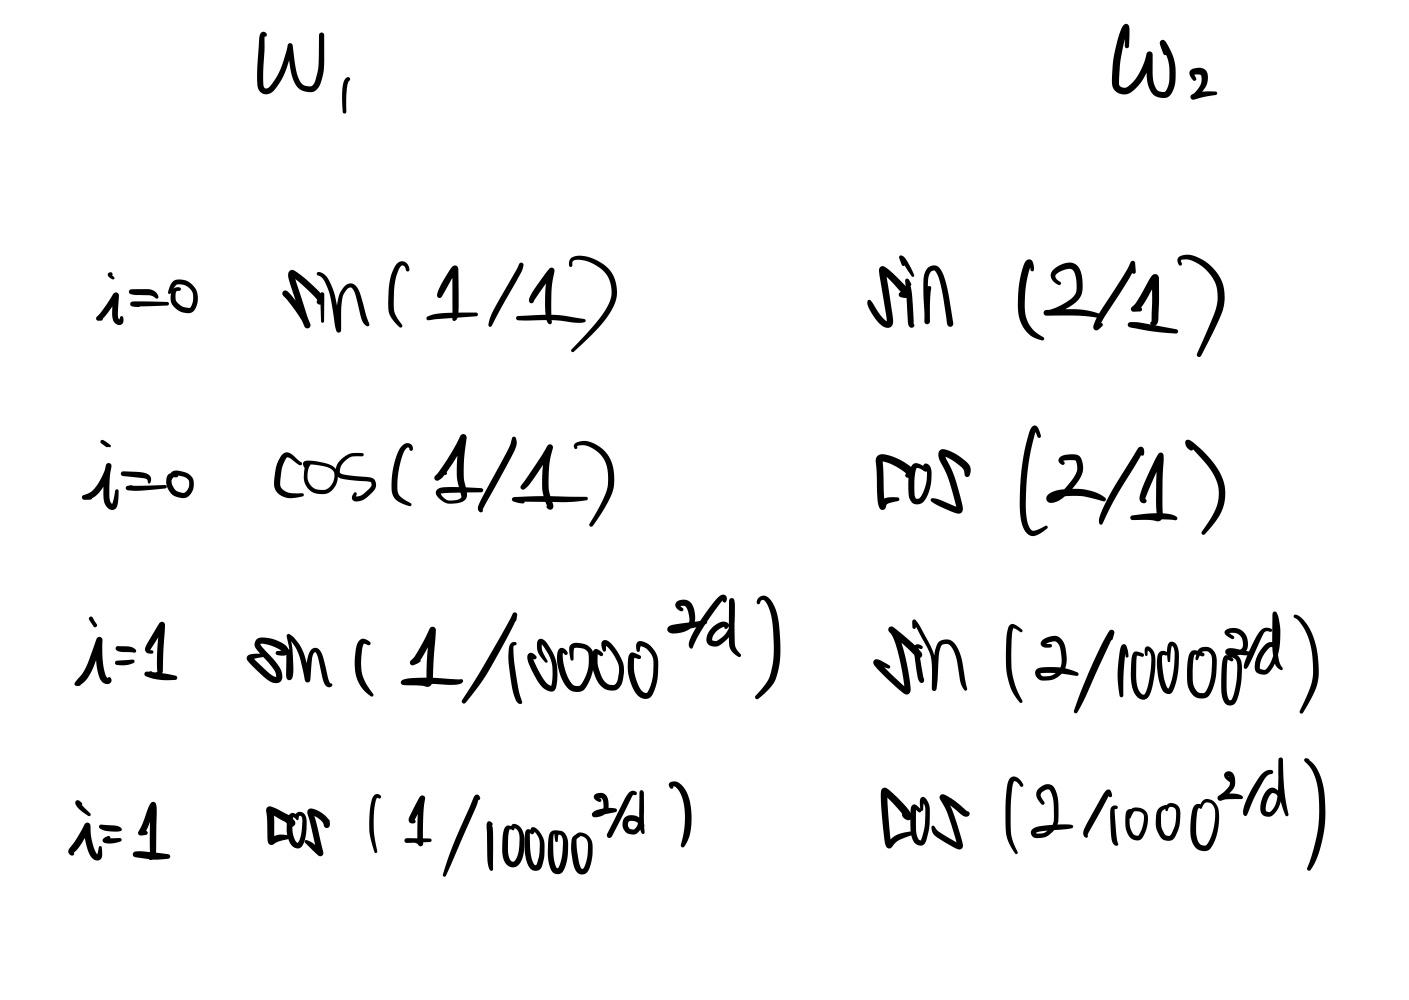 W₁ W₂
i=0 sin(1/1) sin (2/1)
i=0 cos(1/1) cos (2/1)
i=1 sin(1/10000^2/d) sin (2/10000^2/d)
i=1 cos (1/10000^2/d) cos (2/1000^2/d)